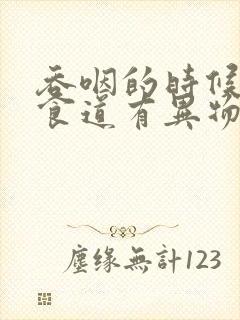 吞咽的時候
食道有異物
塵緣無計123